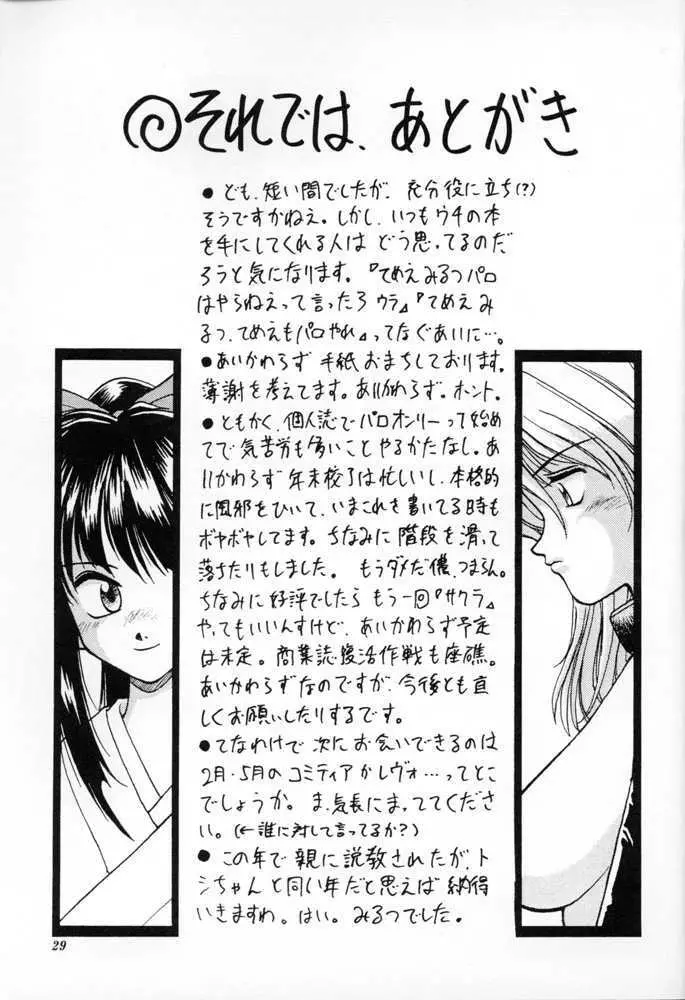 @それでは、あとがき
●ども、短い間でしたが、充分役に立ち(?)
そうですかねえ。しかし、いつもウチの本
を手にしてくれる人は どう思ってるのだ
ろうと気になります。『てめえみるつパロ
はやらねえって言ったろ ウラ』『てめえみ
るつ、てめえもパロやれ』ってなぐあいに…。
●あいかわらず 手紙おまちしております。
薄謝を考えてます。あいかわらず。ホント。
●ともかく、個人誌でパロオンリーって始め
てで気苦労も多いことやるかたなし。あ
いかわらず 年末校了は忙しいし、本格的
に風邪をひいて、いまこれを書いてる時も
ボヤボヤしてます。ちなみに階段を滑って
落ちたりもしました。 もうダメだ儂、つまらん。
ちなみに好評でしたら もう一回『サクラ』
やってもいいんすけど、あいかわらず予定
は未定。商業誌復活作戦も座礁。
あいかわらずなのですが、今後とも宜
しくお願いしたりするです。
●てなわけで 次にお会いできるのは
2月・5月のコミティアかレヴォ…ってとこ
でしょうか。ま、気長にまっててくださ
い。(←誰に対して言ってるか?)
●この年で親に説教されたが、ト
シちゃんと同い年だと思えば 納得
いきますわ。はい。みるつでした。
29